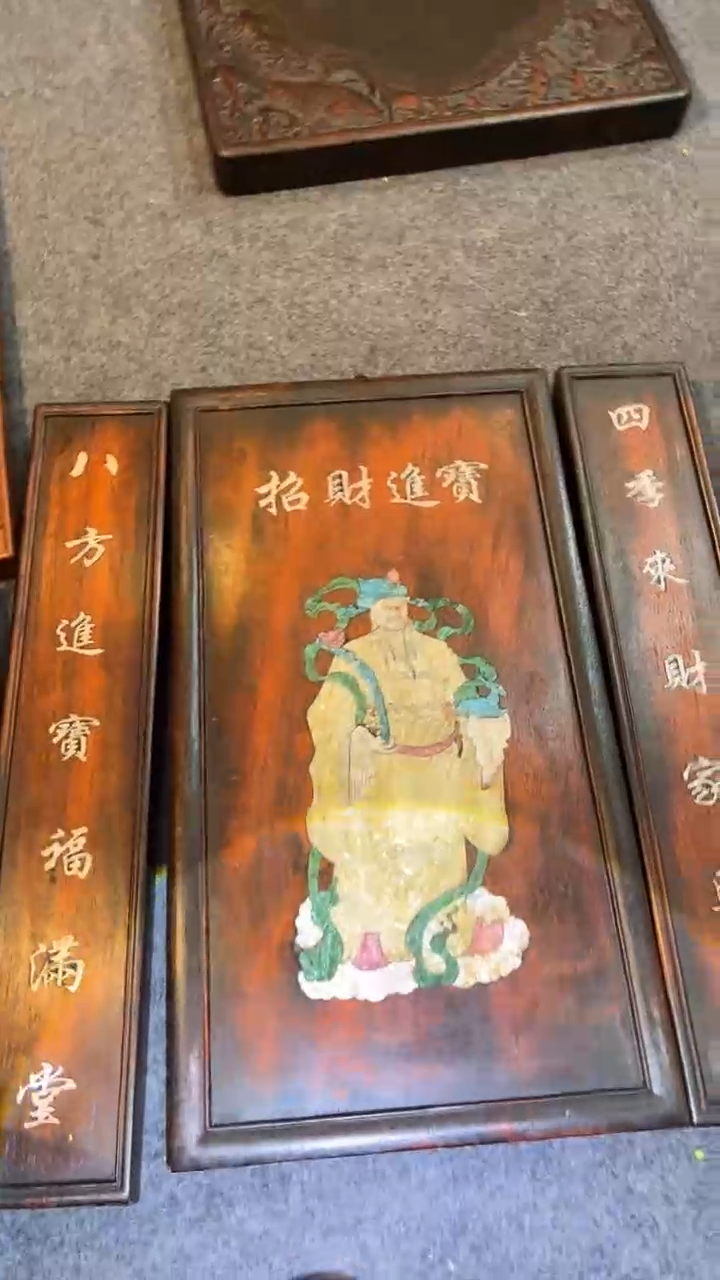 八方進寶福滿堂
招財進寶
四季來財家